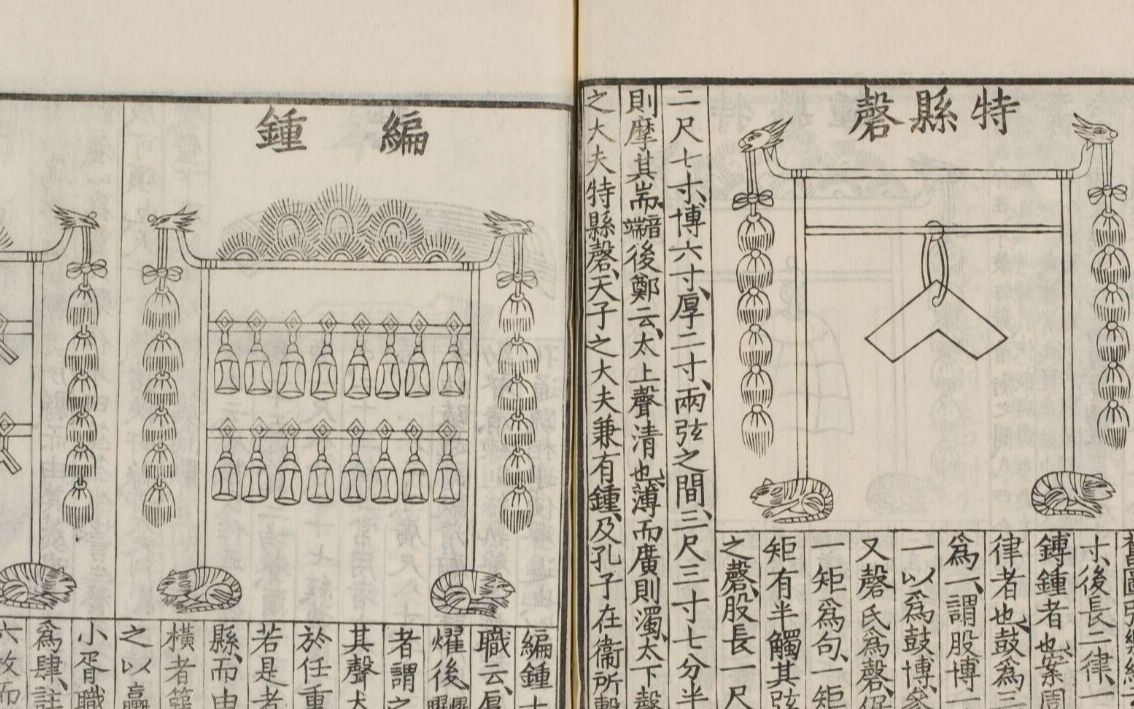 特縣磬
寸後長二律一
鎛鍾者也案周
律者也鼓爲三
爲一謂股博一
一以爲鼓博
又磬氏爲磬倨
一矩爲句一矩
矩有半觸其弦
之磬股長一尺
二尺七寸博六寸厚二寸兩弦之間三尺三寸七分半
則摩其耑音端後鄭云太上聲清也薄而廣則濁太下聲
之大夫特縣磬天子之大夫兼有鍾及孔子在衞所擊
編鍾
編鍾十
職云
後
者謂之
其聲大
於任重
若是者
縣而由
橫者
之以
小胥職
爲肆註
六枚而